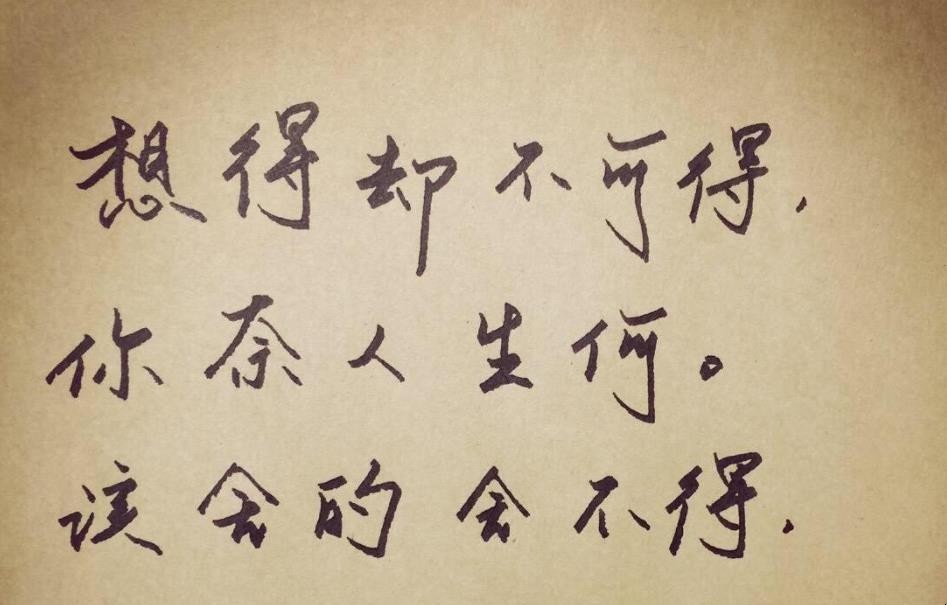 想得却不可得,
你奈人生何。
该舍的舍不得,